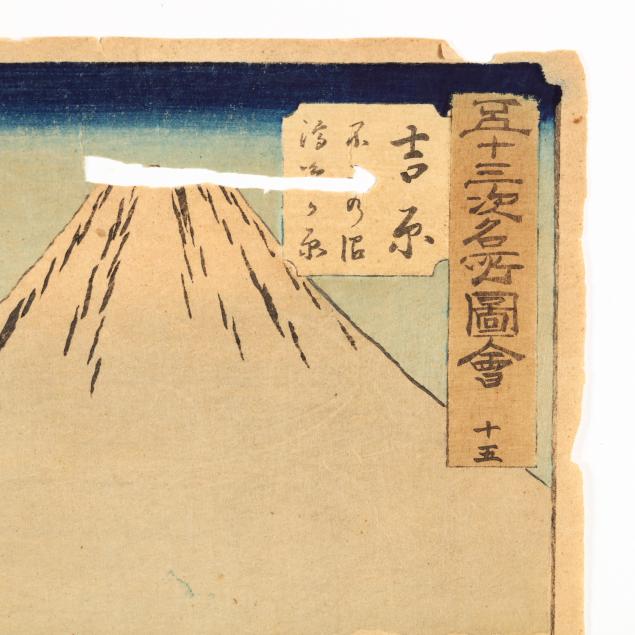 五十三次名所圖會 十五
吉原
不の沼
浮ヶ原